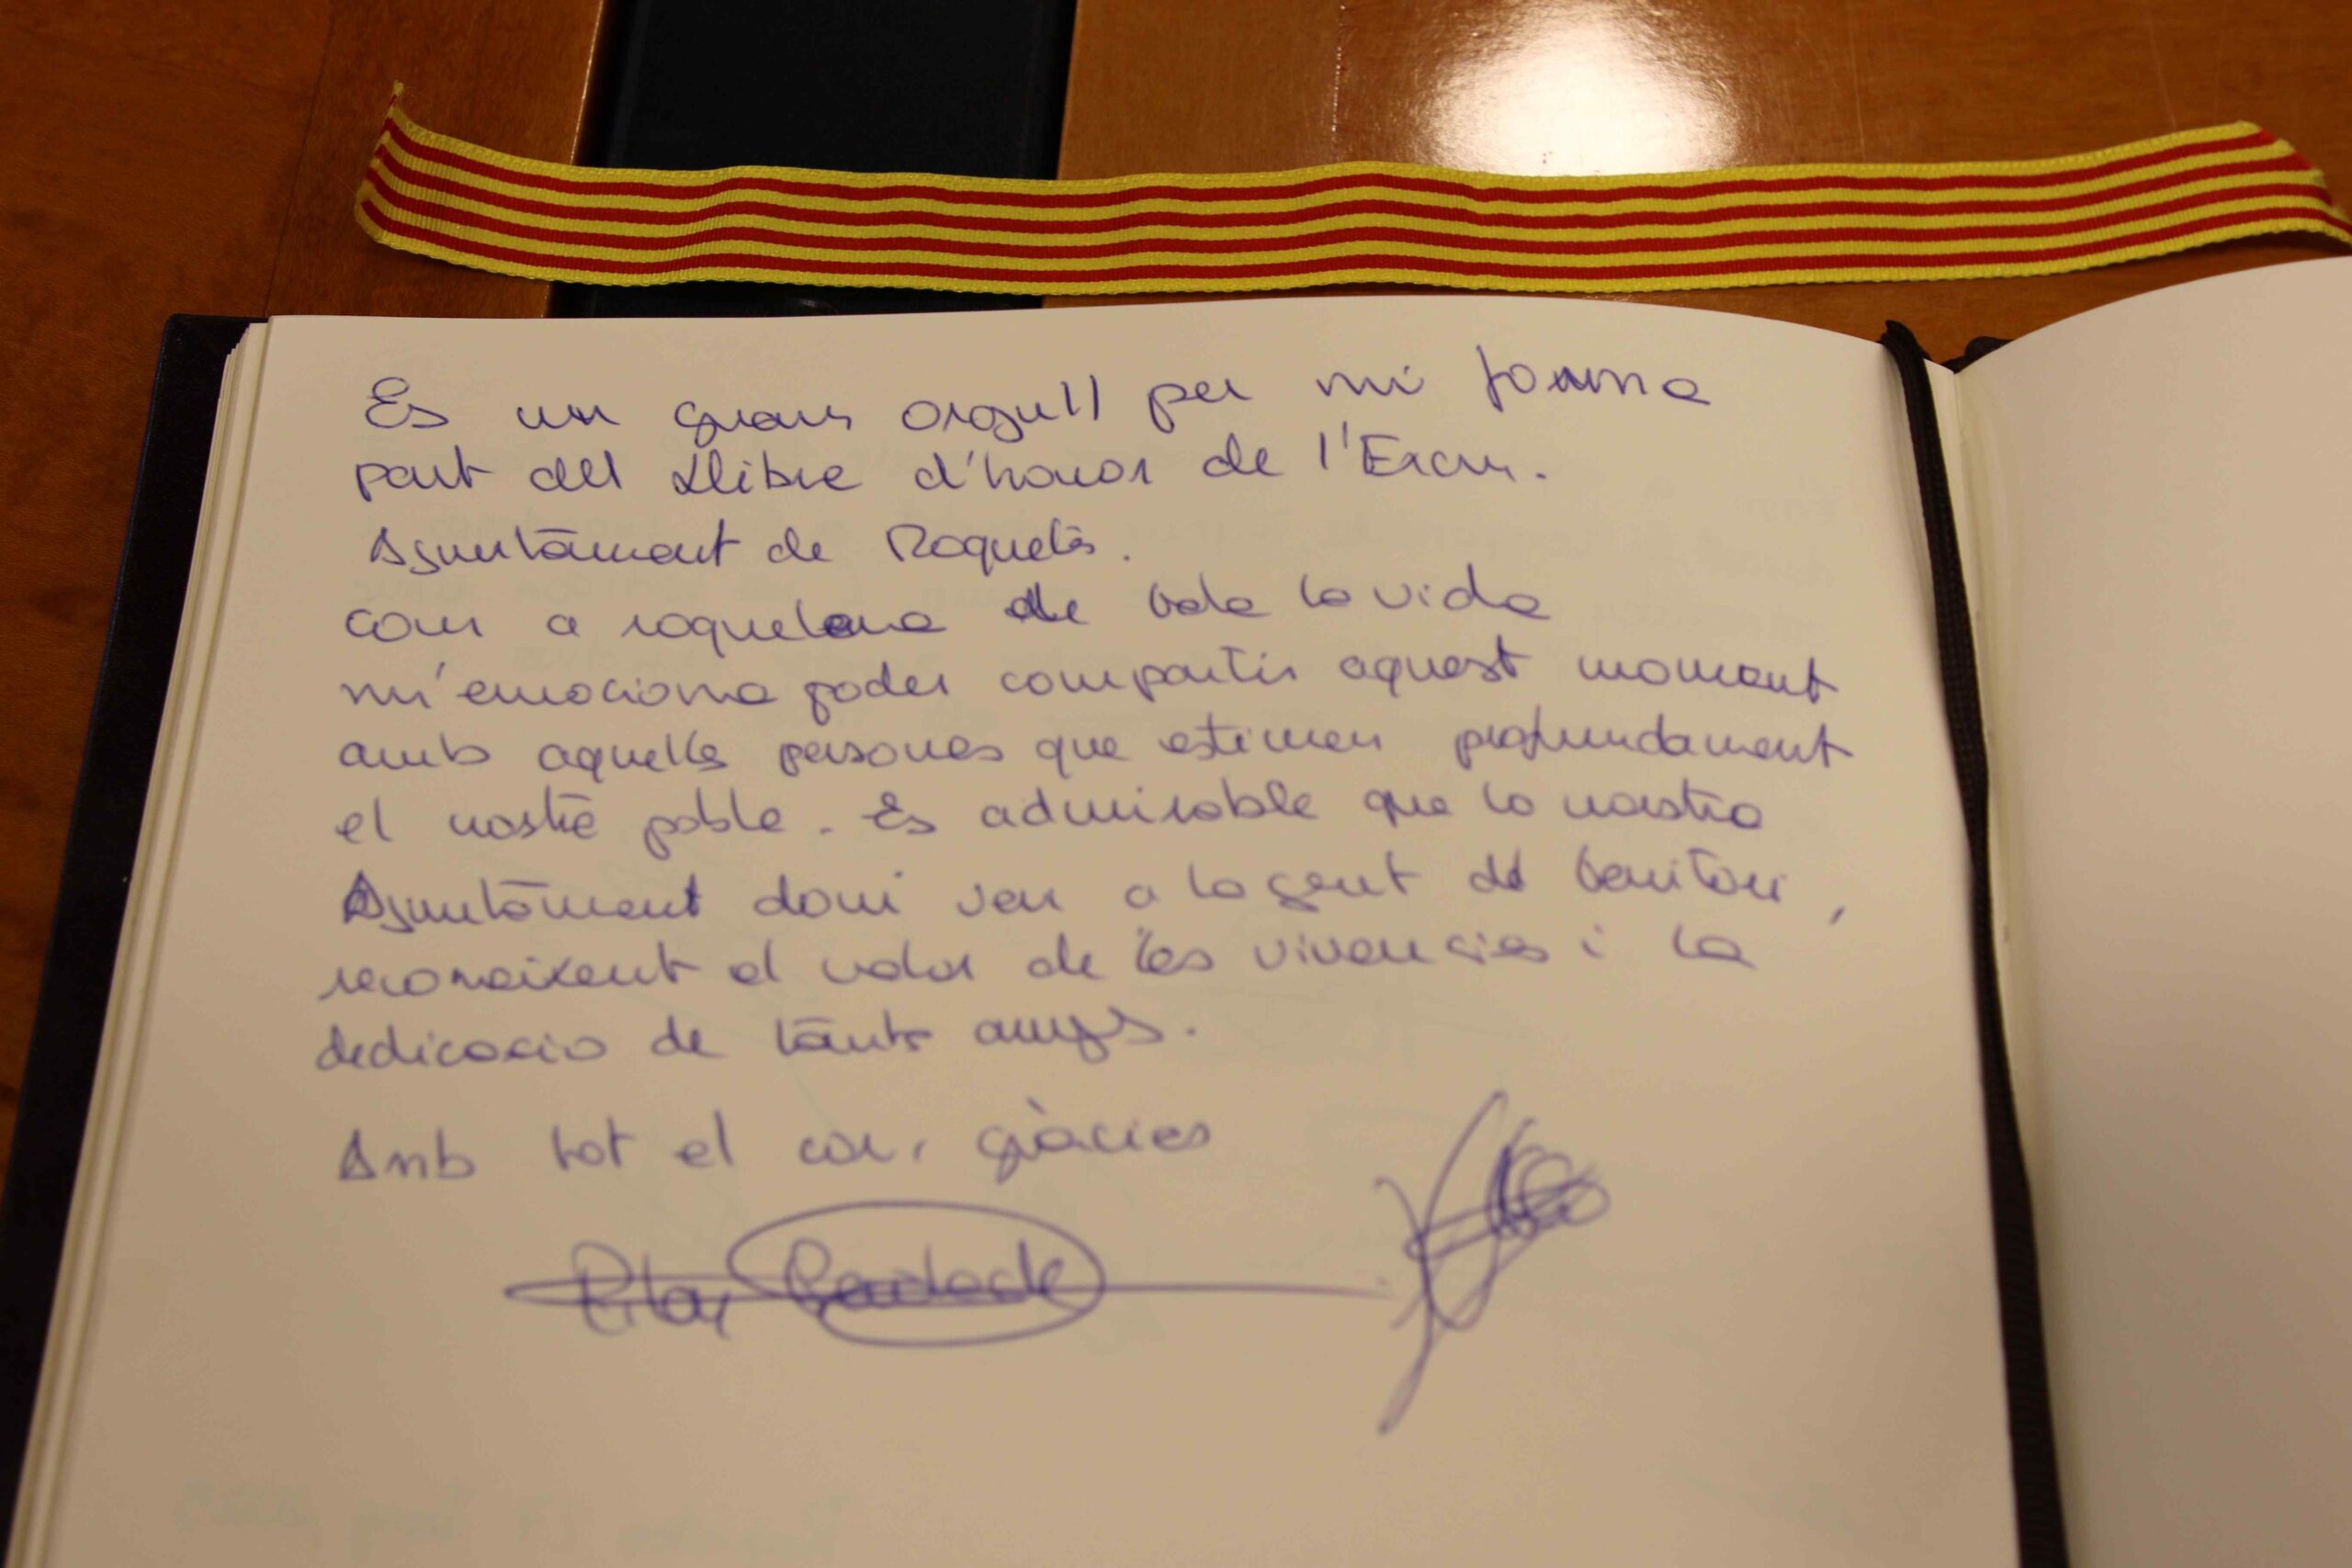 Es un gran orgull per mi forma
part del Llibre d'honor de l'Excm.
Ajuntament de Roquetes.
com a roquetana de tota la vida
m'emociona poder compartir aquest moment
amb aquelles persones que estimen profundament
el nostre poble. Es admirable que lo nostro
Ajuntament doni veu a la gent del territori,
reconeixent el valor de les vivencies i la
dedicacio de tants anys.
Amb tot el cor, gràcies
Pilar